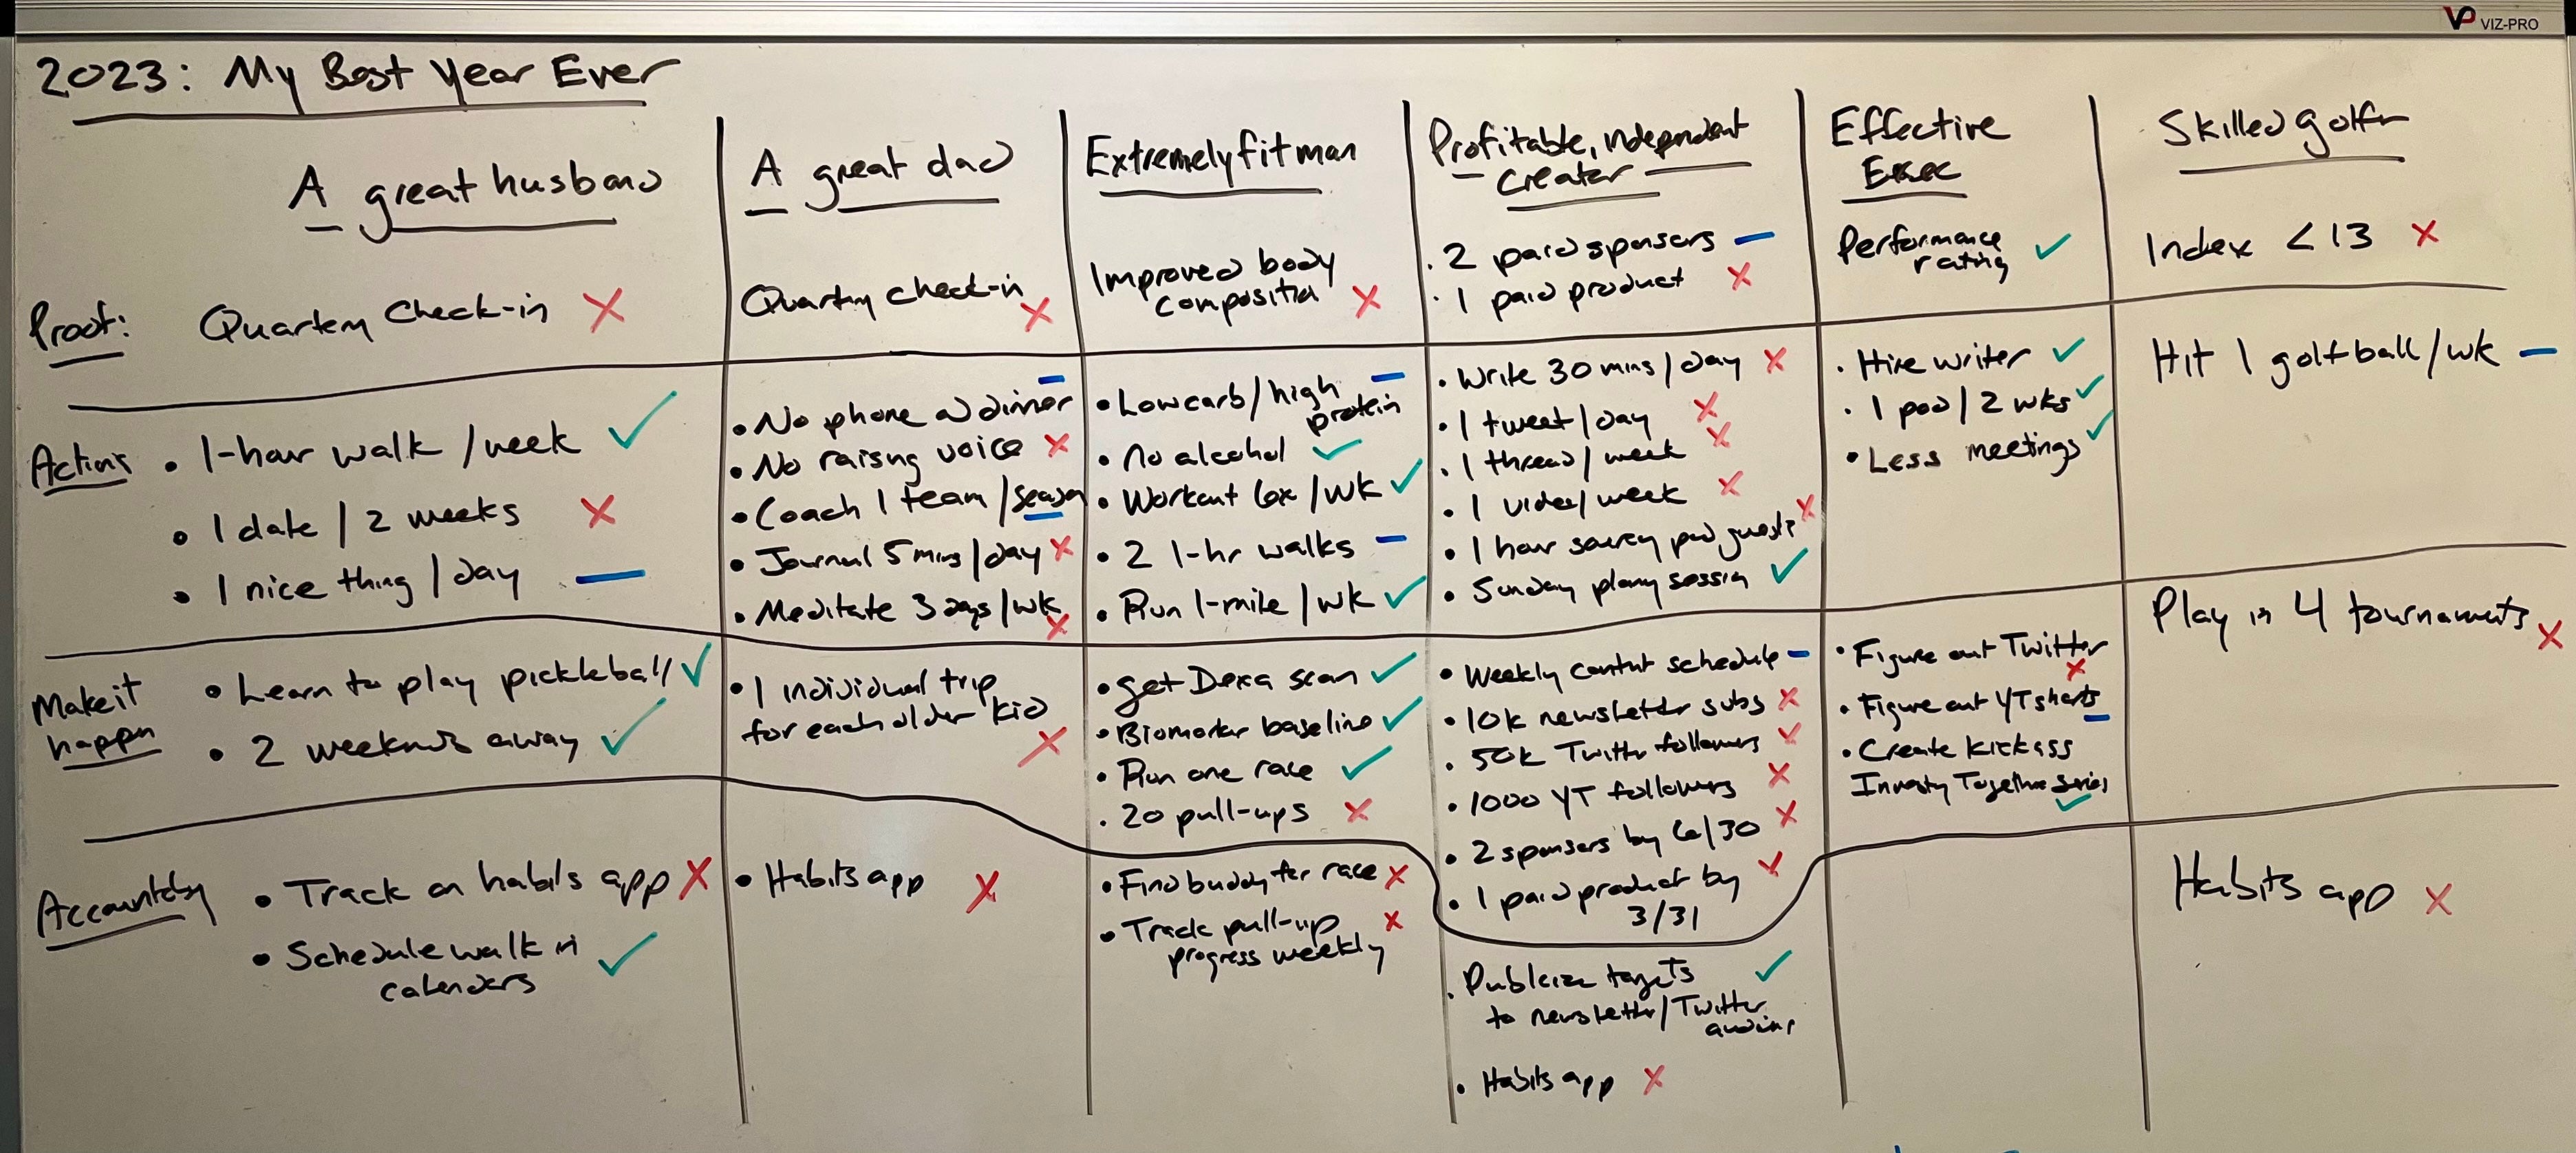 VP VIZ-PRO
2023: My Best Year Ever
A great husband
A great dad
Extremely fit man
Profitable, independent
creator
Effective
Exec
Skilled golfr
Proof:
Quartery check-in
Quartery check-in
Improved body
composition
. 2 paid sponsors
. 1 paid product
Performance
rating
Index < 13
Actions
• 1-hour walk / week
• 1 date / 2 weeks
• 1 nice thing / day
• No phone @ dinner
• No raising voice
• Coach 1 team / season
• Journal 5 mins / day
• Meditate 3 days / wk
• Low carb / high
protein
• No alcohol
• Workout 6x / wk
• 2 1-hr walks
• Run 1-mile / wk
• Write 30 mins / day
• 1 tweet / day
• 1 thread / week
• 1 video / week
• 1 hour pod guests
• Sunday session
• Hire writer
• 1 pod / 2 wks
• Less meetings
Hit 1 golf ball / wk
Make it
happn
• Learn to play pickleball
• 2 weekends away
• 1 individual trip
for each older kid
• Get Dexa scan
• Biomarker baseline
• Run one race
. 20 pull-ups
• Weekly content schedule
• 10k newsletter subs
. 50k Twitter followers
• 1000 YT followers
• 2 sponsers by 6/30
• 1 paid product by
3/31
• Figure out Twitter
• Figure out YT shorts
• Create kickass
Together series
Play in 4 tournaments
• Track on habits app
• Schedule walk in
calendars
• Habits app
• Find buddy for race
• Track pull-up
progress weekly
. Publicize targets
to newsletter / Twitter
• Habits app
Habits app